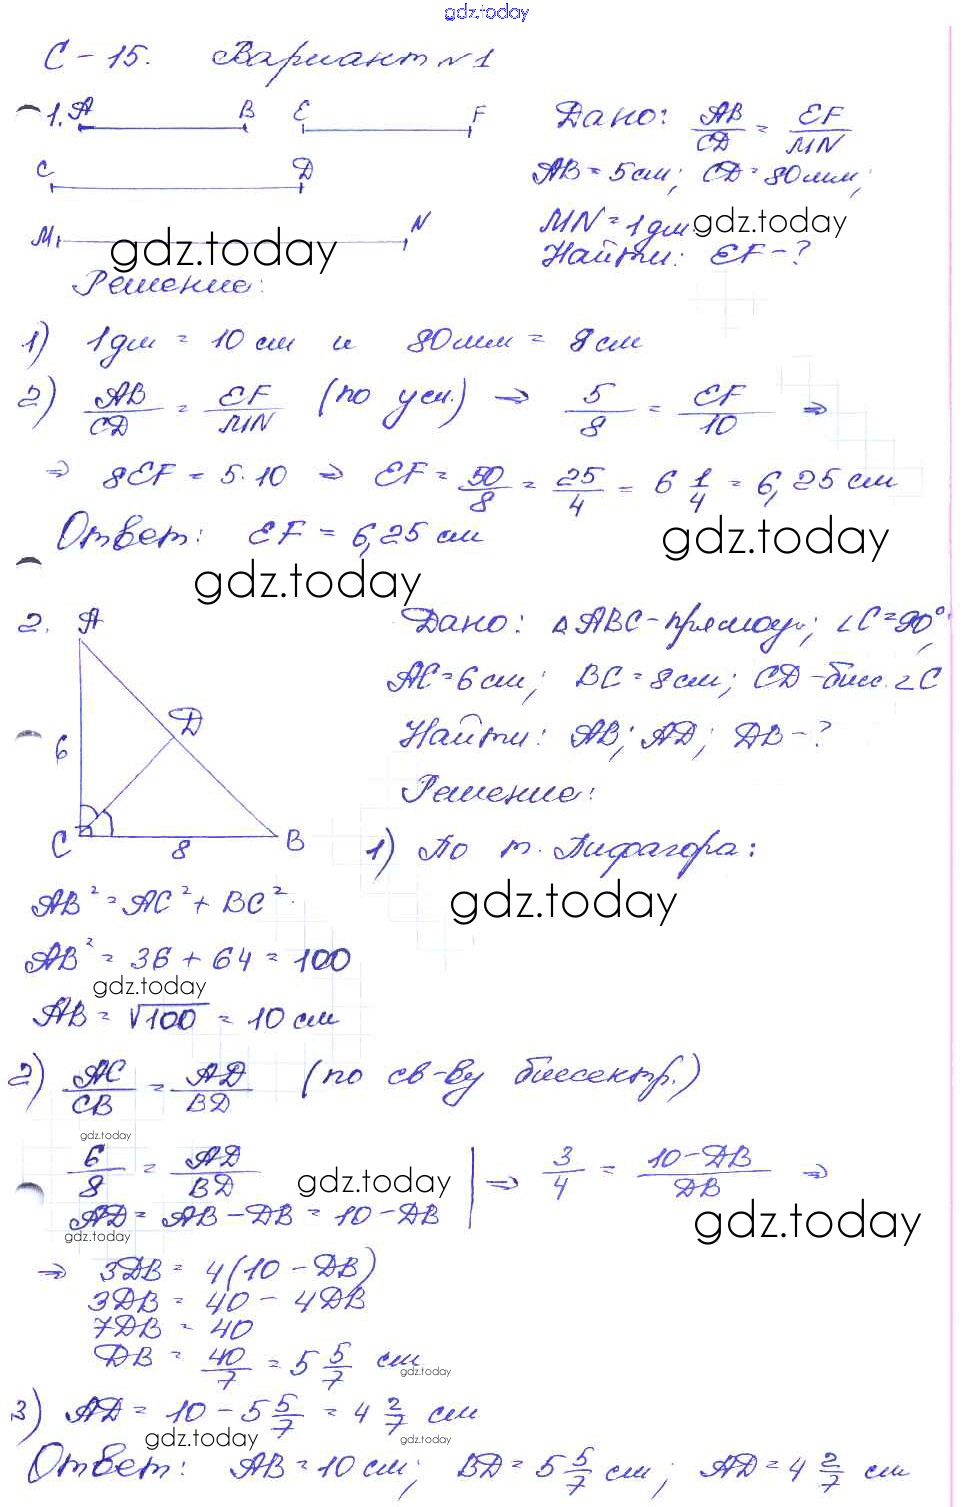 gdz.today
С-15. Вариант №1
1. A B E F
C D
M N
Дано: AB/CD = EF/MN
AB = 5 см; CD = 80 мм;
MN = 1 дм gdz.today
Найти: EF - ?
gdz.today
Решение:
1) 1 дм = 10 см и 80 мм = 8 см
2) AB/CD = EF/MN (по усл.) ⇒ 5/8 = EF/10 ⇒
⇒ 8EF = 5·10 ⇒ EF = 50/8 = 25/4 = 6 1/4 = 6,25 см
Ответ: EF = 6,25 см gdz.today
gdz.today
2. A
D
6
C 8 B
Дано: △ABC - прямоуг; ∠C = 90°;
AC = 6 см; BC = 8 см; CD - бисс. ∠C
Найти: AB; AD; DB - ?
Решение:
1) По т. Пифагора:
AB² = AC² + BC².
gdz.today
AB² = 36 + 64 = 100
gdz.today
AB = √100 = 10 см
2) AC/CB = AD/BD (по св-ву биссектр.)
gdz.today
6/8 = AD/BD gdz.today | ⇒ 3/4 = 10-DB/DB ⇒
AD = AB - DB = 10 - DB gdz.today
gdz.today
⇒ 3DB = 4(10 - DB)
3DB = 40 - 4DB
7DB = 40
DB = 40/7 = 5 5/7 см
gdz.today
3) AD = 10 - 5 5/7 = 4 2/7 см
gdz.today gdz.today
Ответ: AB = 10 см; BD = 5 5/7 см; AD = 4 2/7 см